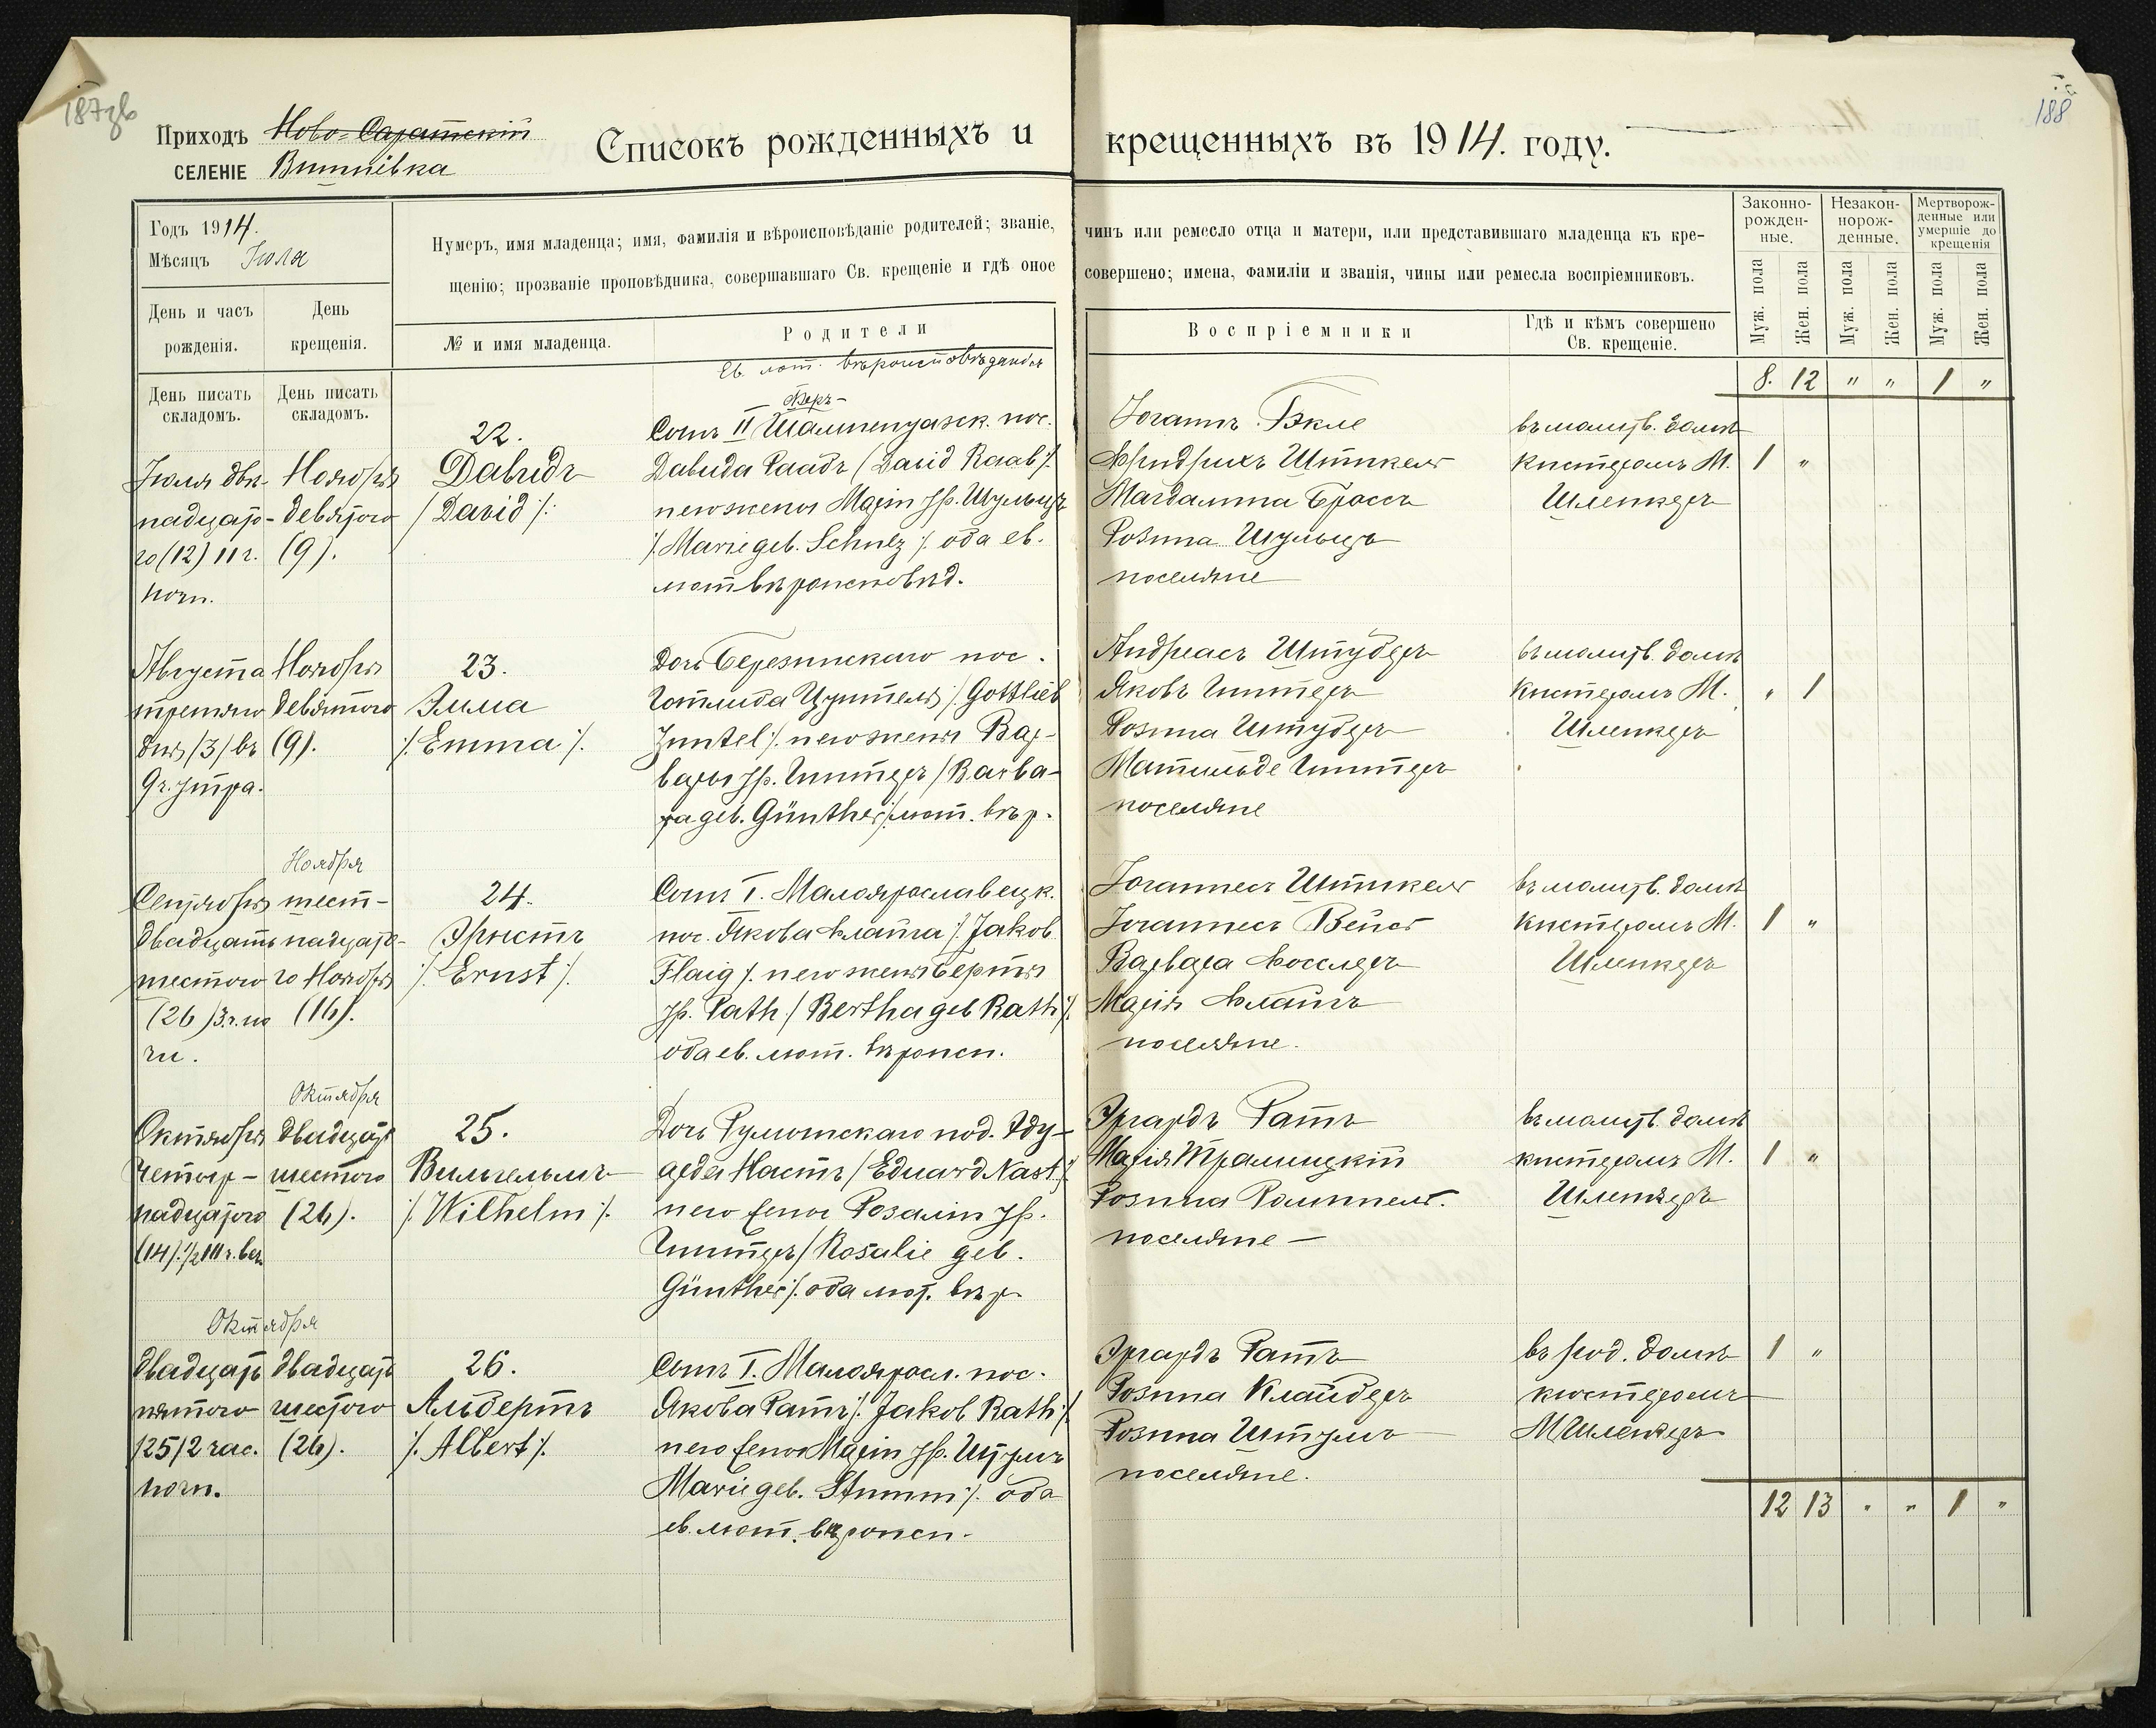 187зв
188
Приходъ Ново-Саратскій
селеніе Вишнівка
Списокъ рожденныхъ и крещенныхъ въ 1914. году.
Годъ 1914.
Мѣсяцъ Іюля
День и часъ рожденія.
День крещенія.
Нумеръ, имя младенца; имя, фамилія и вѣроисповѣданіе родителей; званіе, чинъ или ремесло отца и матери, или представившаго младенца къ кре-
щенію; прозваніе проповѣдника, совершавшаго Св. крещеніе и гдѣ оное совершено; имена, фамиліи и званія, чины или ремесла воспріемниковъ.
№ и имя младенца.
Родители
Воспріемники
Гдѣ и кѣмъ совершено Св. крещеніе.
Законно-рожден-ные.
Незакон-норож-денные.
Мертворож-денные или умершіе до крещенія
Муж. пола
Жен. пола
Муж. пола
Жен. пола
Муж. пола
Жен. пола
День писать складомъ.
День писать складомъ.
8. 12 " " 1 "
Іюля двѣ-
надцато-
го (12) 11 ч.
ночи.
Ноября
девятого
(9).
22.
Давидъ
/David/.
Сынъ II Шампенуазск. пос.
Давида Раабъ /David Raab/.
и его жены Маріи ур. Шульцъ
/. Marie geb. Schulz /. оба ев.
лют вѣроисповѣд.
Іоганнъ Бэкле
Фридрихъ Штикель
Магдалина Броссъ
Розина Шульцъ
поселяне
въ молитв. домѣ
кистеромъ М.
Шленкеръ
1 "
Августа
третяго
дня /3/ въ
9 ч. утра.
Ноября
девятого
(9).
23.
Эмма
/. Emma /.
Дочь Березинскаго пос.
Готлиба Цунтель /. Gottlieb
Zuntel /. и его жены Вар-
вары ур. Гинтеръ /Barba-
ra geb. Günther/. лют. вѣр.
Андреасъ Штуберъ
Яковъ Гинтеръ
Розина Штуберъ
Матильде Гинтеръ
поселяне
въ молитв. домѣ
кистеромъ М.
Шленкеръ
" 1
Сентября
двадцать
шестого
(26) 3 ч. но
чи.
Ноября
шест-
надцато-
го Ноября
(16).
24.
Эрнстъ
/. Ernst /.
Сынъ I. Малоярославецк.
пос. Якова Флайга /. Jakob
Flaig /. и его жены Берты
ур. Ратъ. / Bertha geb Rath /.
оба ев. лют. вѣроисп.
Іоганнесъ Штикель
Іоганнесъ Вейсъ
Варвара Фосслеръ
Марія Флайгъ
поселяне.
въ молитв. домѣ
кистеромъ М.
Шленкеръ
1 "
Октября
четыр-
надцатого
(14). 1/2 11 ч. веч.
Октября
двадцать
шестого
(26).
25.
Вильгельмъ
/. Wilhelm /.
Дочь Румынскаго под. Эду-
арда Настъ / Eduard Nast /.
и его жены Розаліи ур.
Гинтеръ / Rosalie geb.
Günther /. оба лют. вѣр.
Эргардъ Ратъ
Розина Роммель.
поселяне —
въ молитв. домѣ
кистеромъ М.
Шленкеръ
1 "
Октября
двадцать
пятого
/25/ 2 час.
ночи.
двадцать
шестого
(26).
26.
Альбертъ
/. Albert /.
Сынъ I. Малояросл. пос.
Якова Ратъ /. Jakob Rath /.
и его жены Маріи ур. Штумъ
Marie geb. Stumm /. оба
ев. лют. вѣроисп.
Эргардъ Ратъ
Розина Клайберъ
Розина Штумъ
поселяне.
въ род. домѣ
кюстеромъ
М Шленкеръ
1 "
12 13 " " 1 "